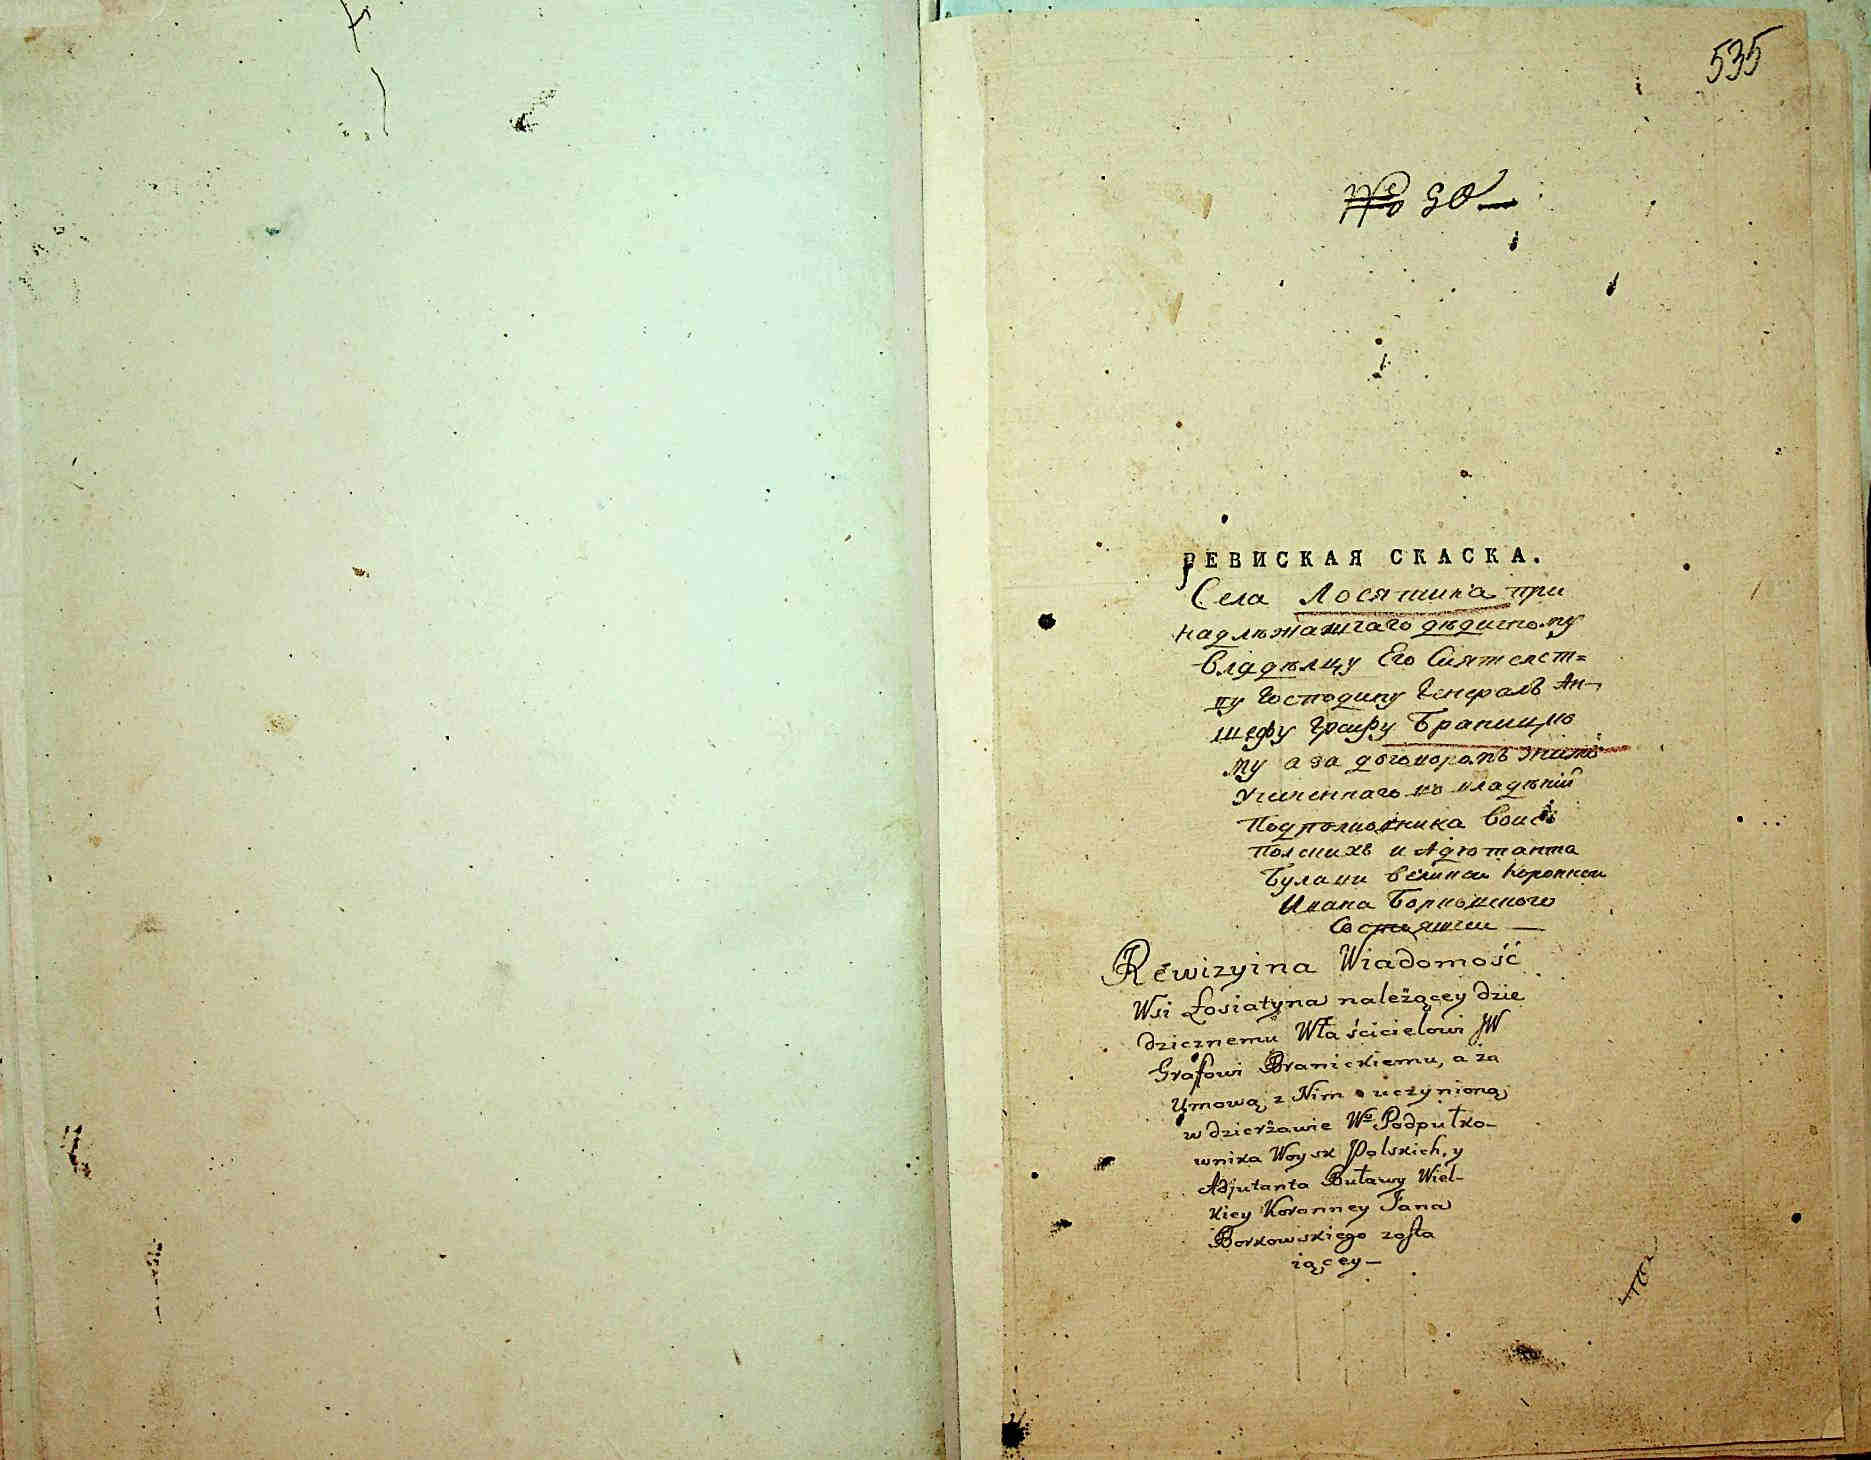 535
№ 90
РЕВИСКАЯ СКАСКА.
Села Лосятина при
надлѣжащаго дѣдичному
владѣлцу Его Сиятелст=
ву Господину Генералъ Ан-
шефу Графу Браницко
му а за договоромъ
Учиненнаго во владѣнїи
Подполковника Воискъ
Полскихъ и Адютанта
Булави великои коронной
Ивана Борковского
Состоящеи —
Rewizyina Wiadomość
Wsi Łosiatyna należącey dzie
dzicznemu Właścicielowi JW
Grafowi Branickiemu, a za
Umową z Nim uczynioną
w dzierżawie Wo Podpułko-
wnika Woysk Polskich, y
Adjutanta Buławy Wiel-
kiey Koronney Jana
Borkowskiego zosta
iącey —